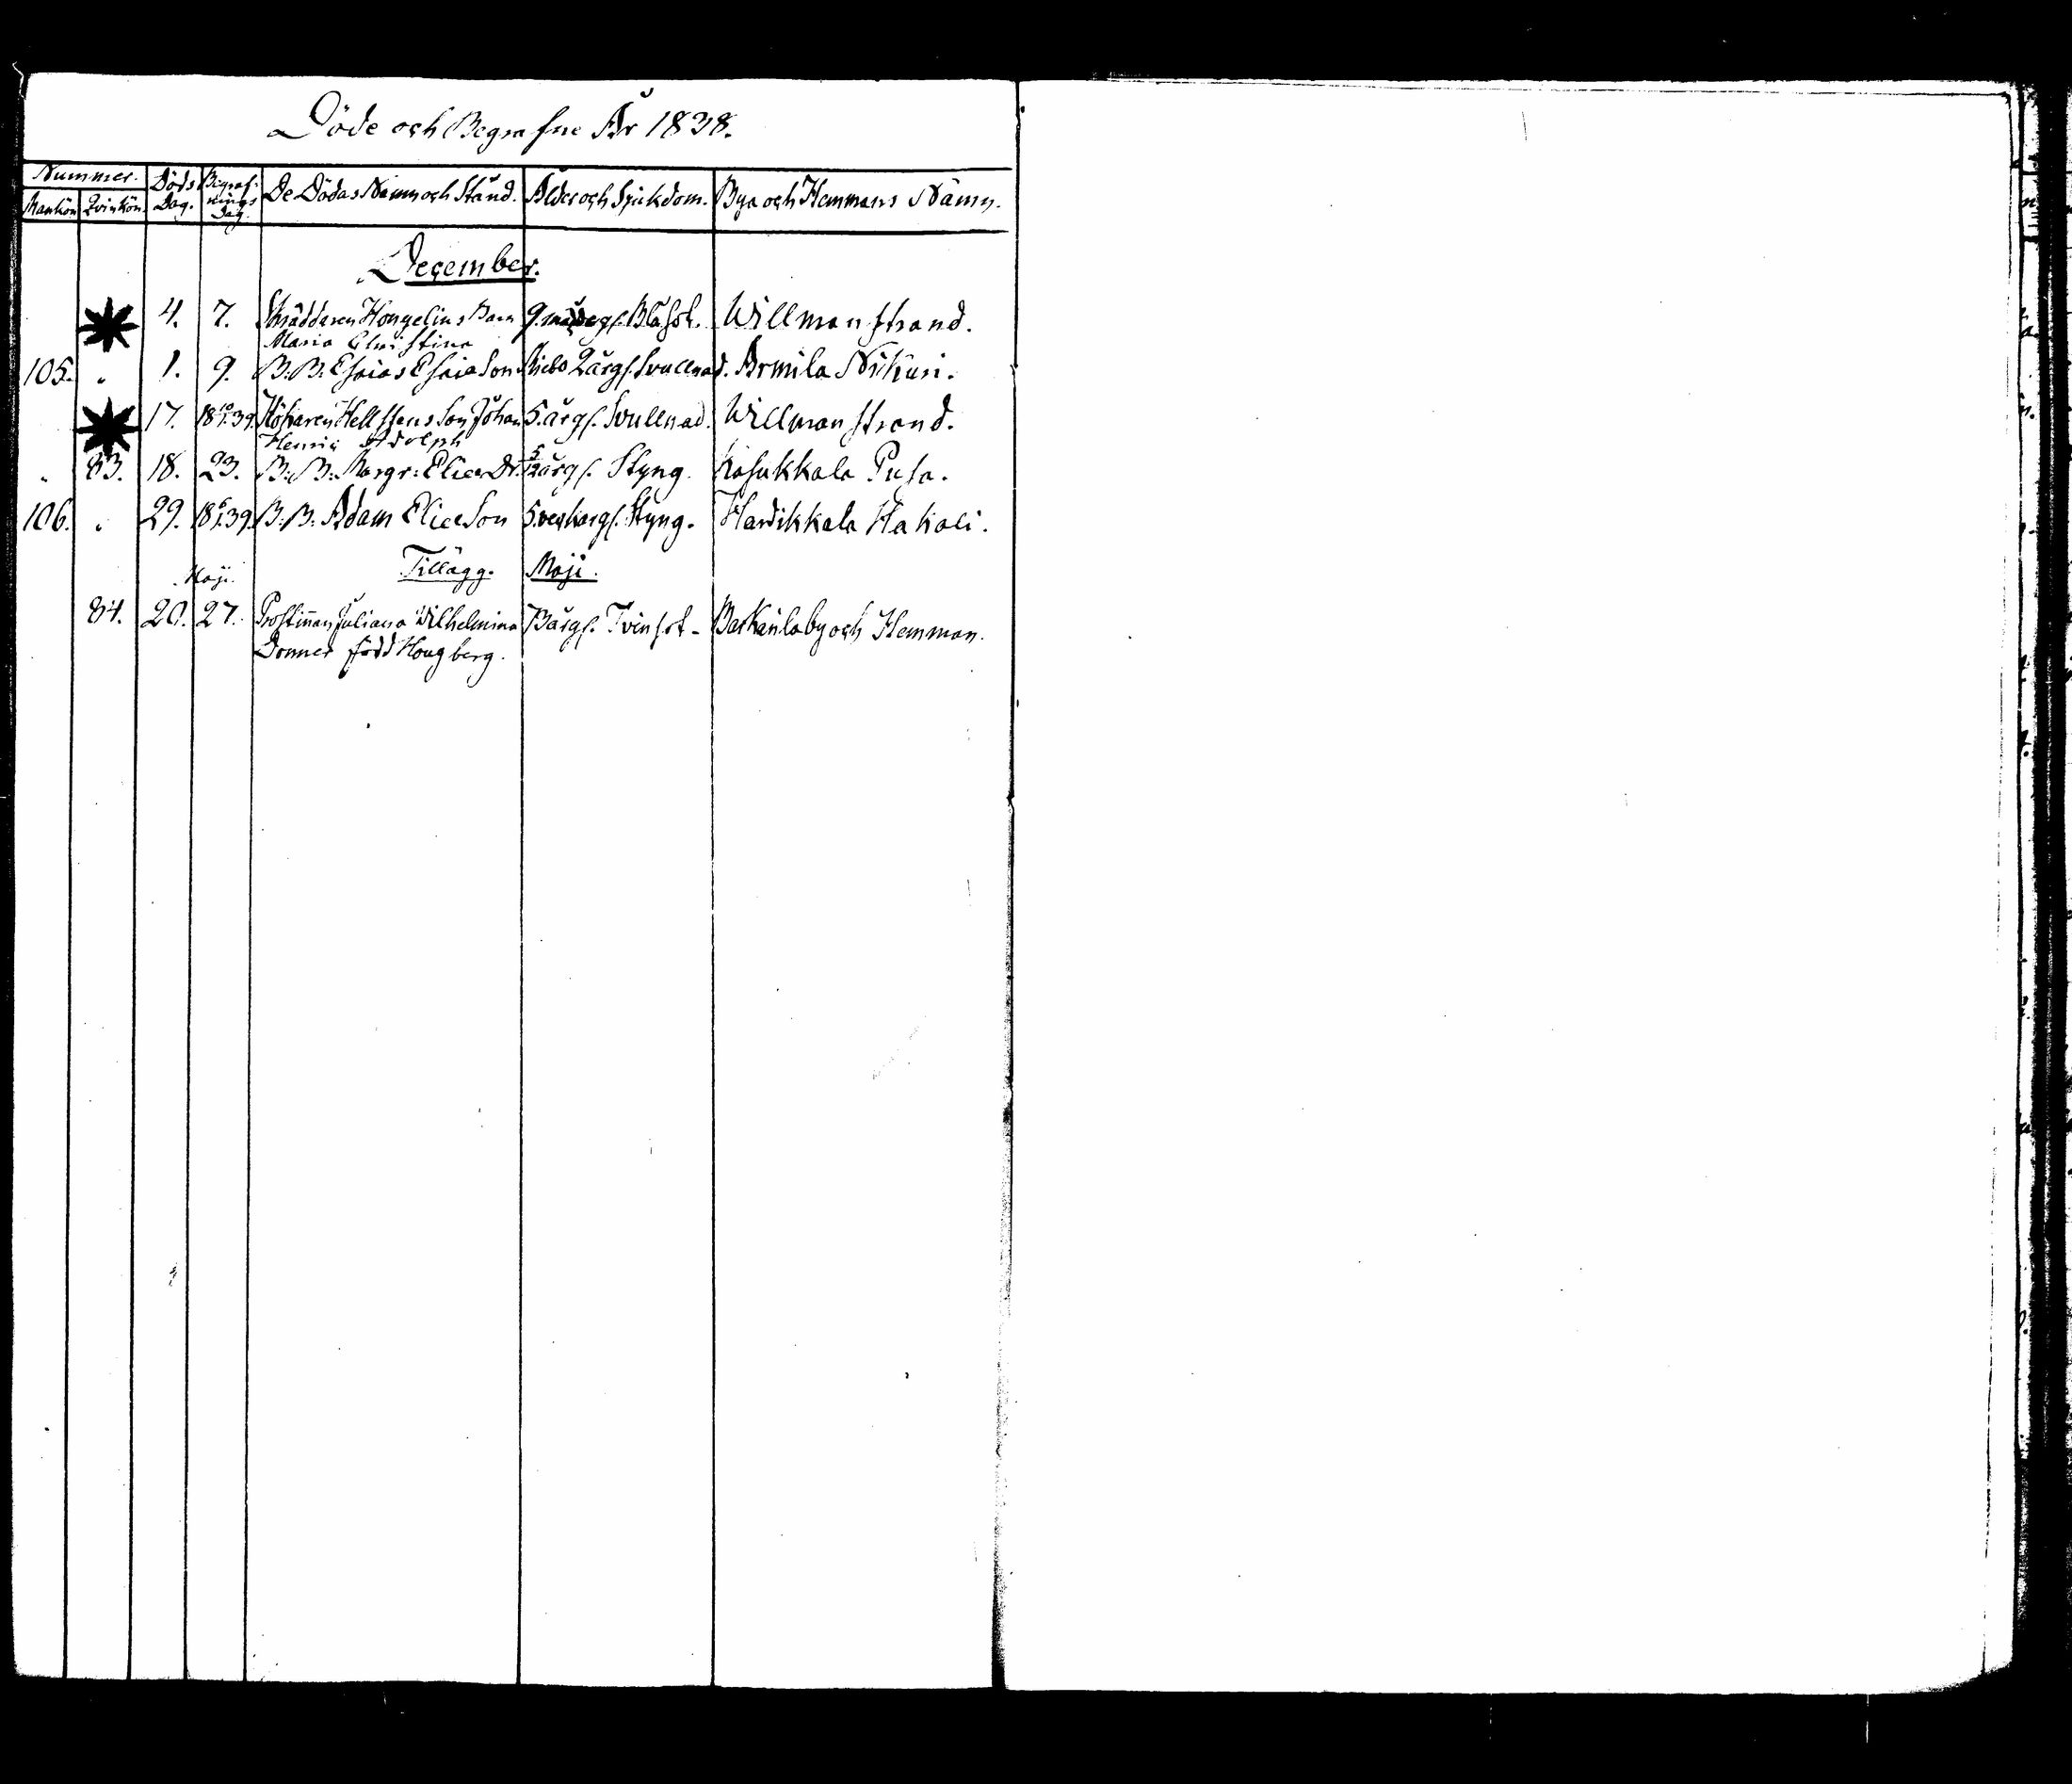 Döde och Begrafne År 1838.
Nummer. Döds Dag. Begrafnings Dag. De Dödas Namn och Stånd. Ålder och Sjukdom. Bya och Hemmans Nämn.
Mankön Qvinkön.
December.
4. 7. Skräddaren Hongelins Barn 9. Blåsot. Willmanstrand.
Maria Christina
105. " 1. 9. B: B: Esaias Esaiæson 2 årg/. Svullnad. Armila Nikuri.
17. 18 10/1 39. Hellstens Son Johan 5. årg/. Svullnad. Willmanstrand.
Henric Adolph
" 83. 18. 23. B: B: Margr: Eliæ Dr. 5/12 årg/. Styng. Kasukkala Pusa.
106. " 29. 18 6/1 39. B: B: Adam Eliæson 5. veckorg/. Styng. Hardikkala Hakali.
Tillägg. Maji.
Maji.
84. 20. 27. Prostinnan Juliana Wilhelmina årg/. Tvinsot - by och Hemman.
Donner född Hougberg.